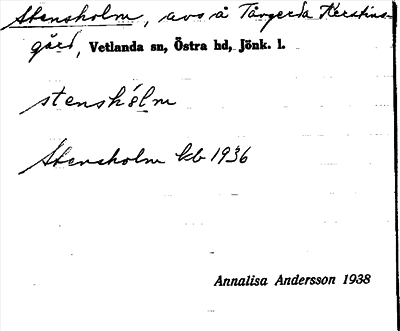 Stensholm, avs å Tårgerda Kerstins-
gård, Vetlanda sn, Östra hd, Jönk. l.
stenshólm
Stensholm kb 1936
Annalisa Andersson 1938